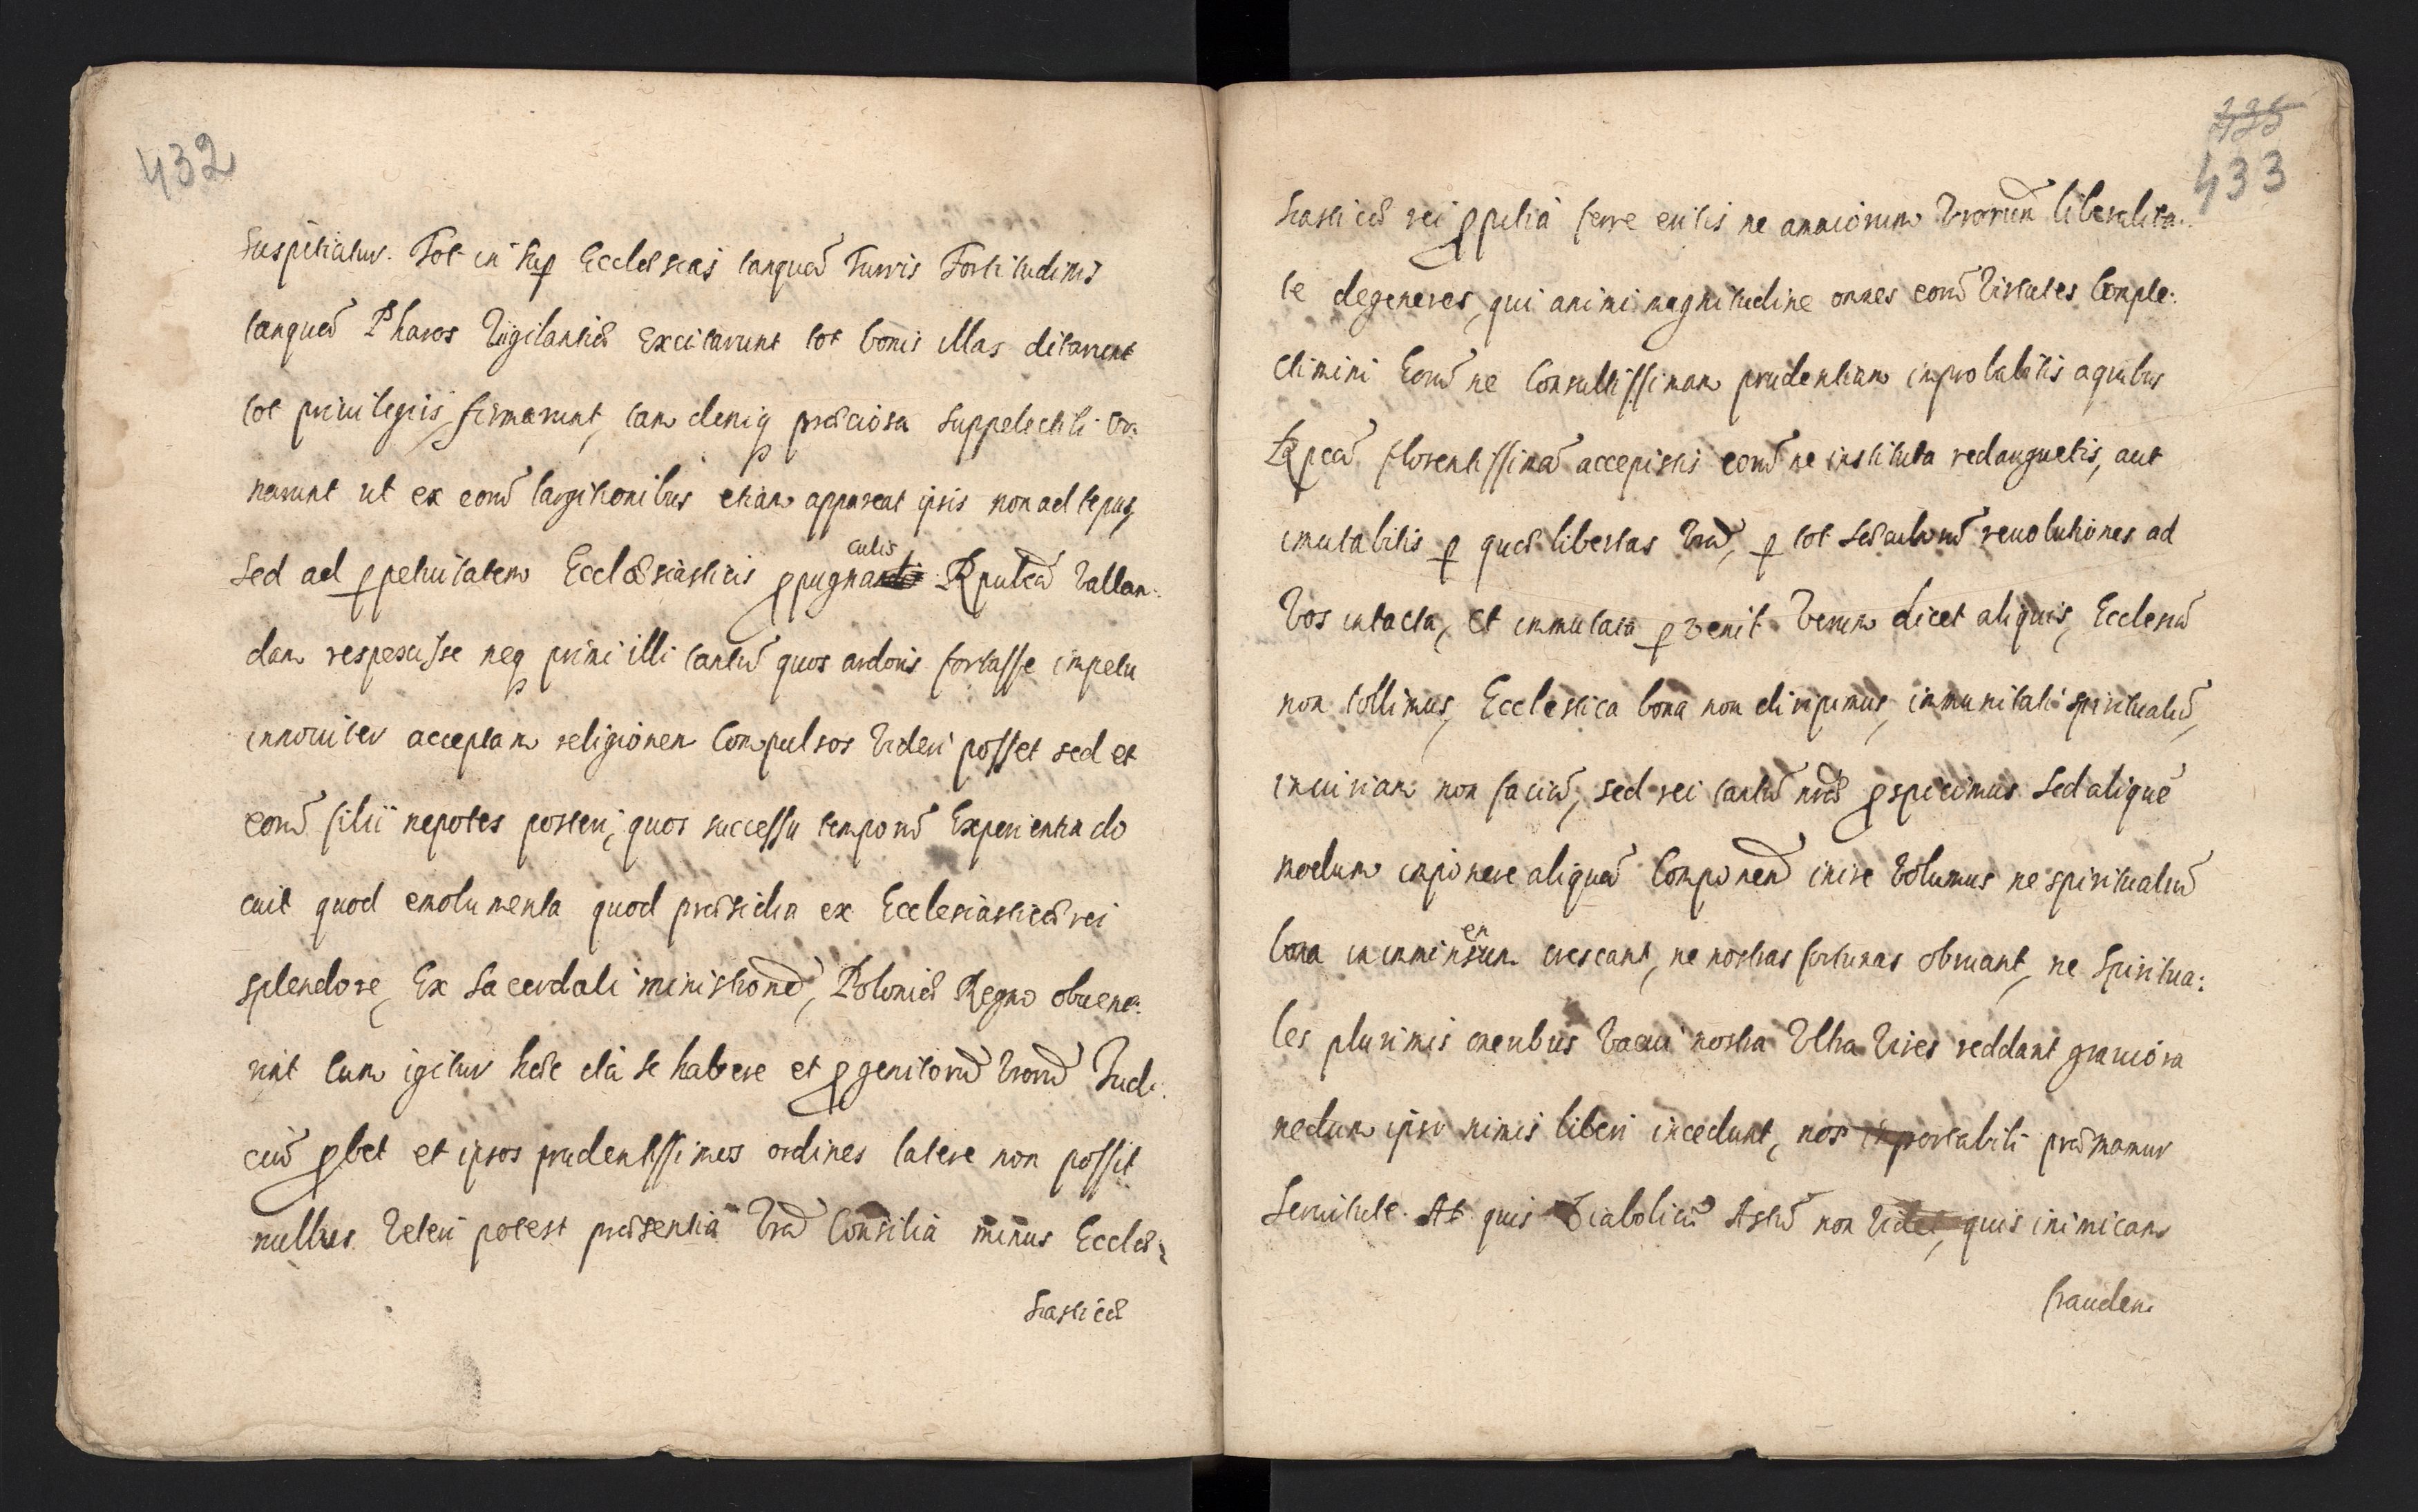 432
suspitiatur. Tot in sup Ecclesias tanquā Turris Fortitudinis
tanquā Pharos Vigilantiæ excitarunt tot bonis illas ditarunt
tot priuilegiis firmarunt, tam deniq præciosa suppelectili or:
narunt ut ex eorū largitionibus etiam appareat ipsis non ad tepus,
sed ad ꝑpetuitatem Ecclæsiasticis ꝓpugnaculis Rpublcā Vallan:
dam respexisse neq primi illi tantū quos ardoris fortasse impetu
innouiter acceptam religionem Compulsos Videri posset sed et
eorū filii nepotes posteri, quos successu temporū Experientia do
cuit quod emolumenta quod præsidia ex Ecclesiasticæ rei
splendore, Ex sacerdali ministrorū, Poloniæ Regno obuene:
rint Cum igitur hæc ità se habere et ꝓgenitorū Vrorū Judi:
ciū ꝓbet et ipsos prudentissimos ordines latere non possit
nullus Vereri potest præsentia Vra Consilia minus Eccles:
siasticæ
435
433
siasticæ rei ꝓpitia ferre eritis ne amaiorum Vrorum liberalita:
te degeneres, qui animi magnitudine omnes eorū Virtutes Comple:
ctimini Eorū ne Consultissimam prudentiam improbabitis a quibus
Rpcā florentissimā accepistis eorū ne instituta redarguetis, aut
imutabitis ꝑ quæ libertas Vra, ꝑ tot sæculorū reuolutiones ad
Vos intacta, et immutata ꝑvenit Verum dicet aliquis, Ecclesiā
non tollimus, Ecclestica bona non diripimus, immunitati spiritualiū,
iniuiriam non faciū, sed rei tantū nræ ꝓspicimus sed aliquē
modum imponere aliquā Componend inire Volumus ne spiritualiū
bona in immensum crescant, ne nostras fortunas obruant, ne Spiritua:
les plurimis oneribus Vacui nostra Vltra Vires reddant grauiora
nedum ipsi nimis liberi incedunt, nos importabili præmamur
Seruitute. At quis Diabolicū Astū non Videt, quis inimicam
fraudem